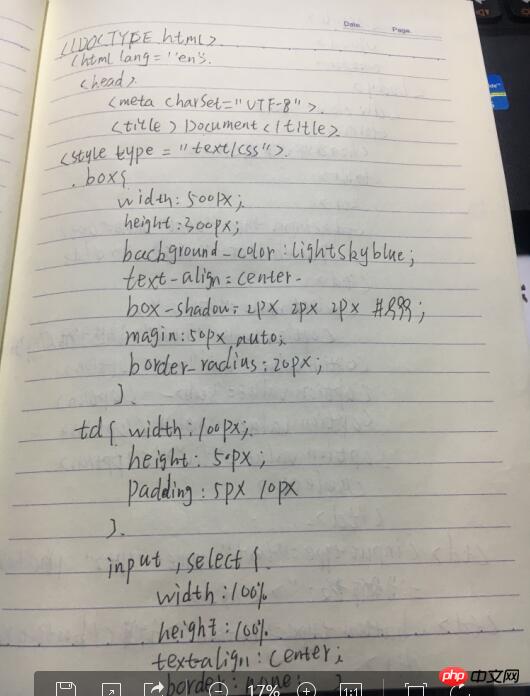 Date.    Page.
<!DOCTYPE html>
<html lang="en">.
<head>.
<meta charset="UTF-8">.
<title>Document</title>.
<style type="text/css">.
.box{
width:500px;
height:300px;
background-color:lightskyblue;
text-align:center.
box-shadow: 2px 2px 2px
magin:50px auto;
border-radius:20px;
}.
td{ width:100px;
height: 50px;
padding: 5px 10px
}.
input,select{.
width:100%
height:100%
text-align:center;
border: none; }
17%
1:1
php中文网